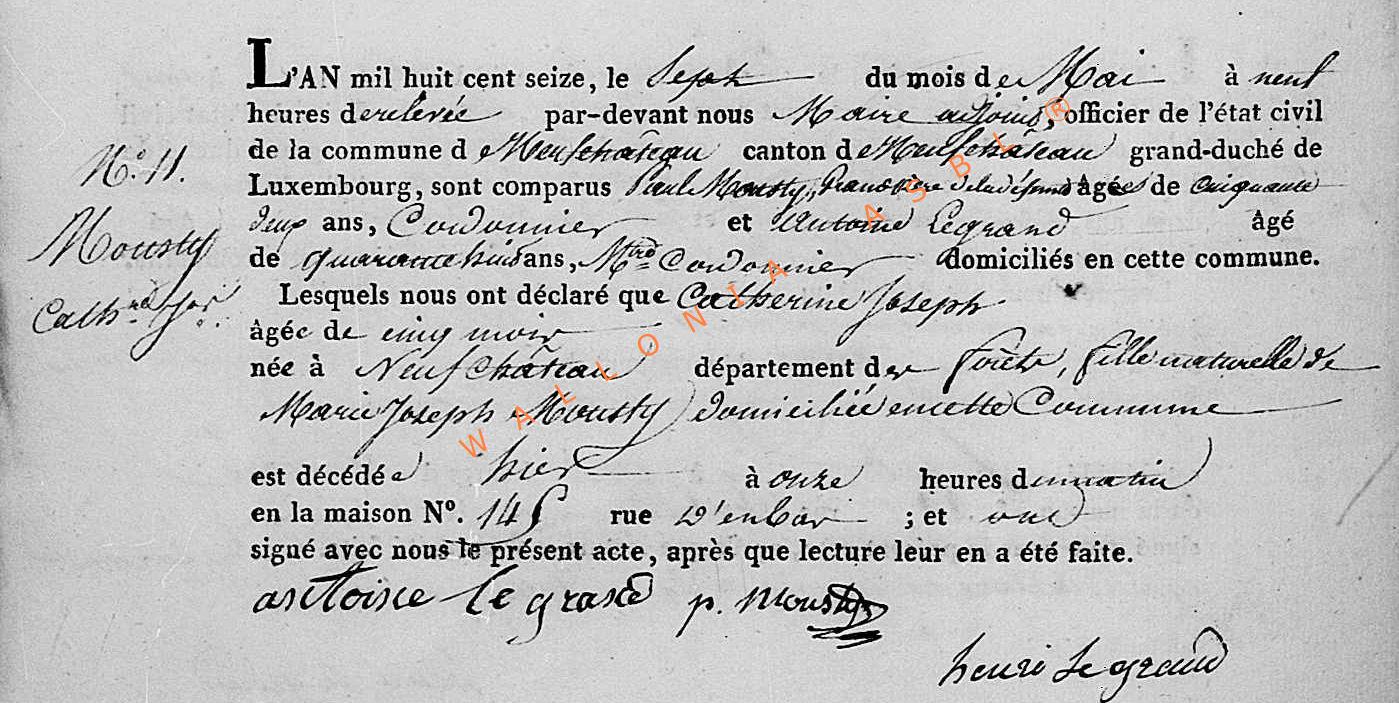 L'AN mil huit cent seize, le Sept du mois de Mai à neuf
heures de relevée par-devant nous Maire adjoint, officier de l'état civil
de la commune de Neufchâteau canton de Neufchâteau grand-duché de
N.º 11.
Luxembourg, sont comparus Paul Mousty, grand père de la défunte âgés de cinquante
deux ans, Cordonnier et Antoine Legrand âgé
Mousty
de quarante huit ans, Mtre Cordonnier domiciliés en cette commune.
Lesquels nous ont déclaré que Catherine Joseph
Cathne Jos.
âgée de cinq mois
née à Neufchâteau département des forêts, fille naturelle de
Marie Joseph Mousty domiciliée en cette Commune
est décédée hier à onze heures du matin
en la maison Nº. 145 rue d'enbas ; et ont
signé avec nous le présent acte, après que lecture leur en a été faite.
antoine le grand p. Mousty
henri Legrand
WALLONIA ASBL ®